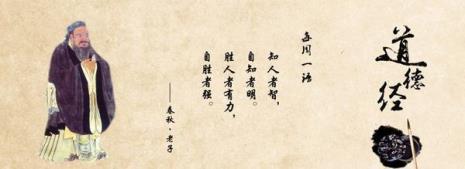 道德经
每周一语
知人者智，
自知者明。
胜人者有力，
自胜者强。
——春秋·老子